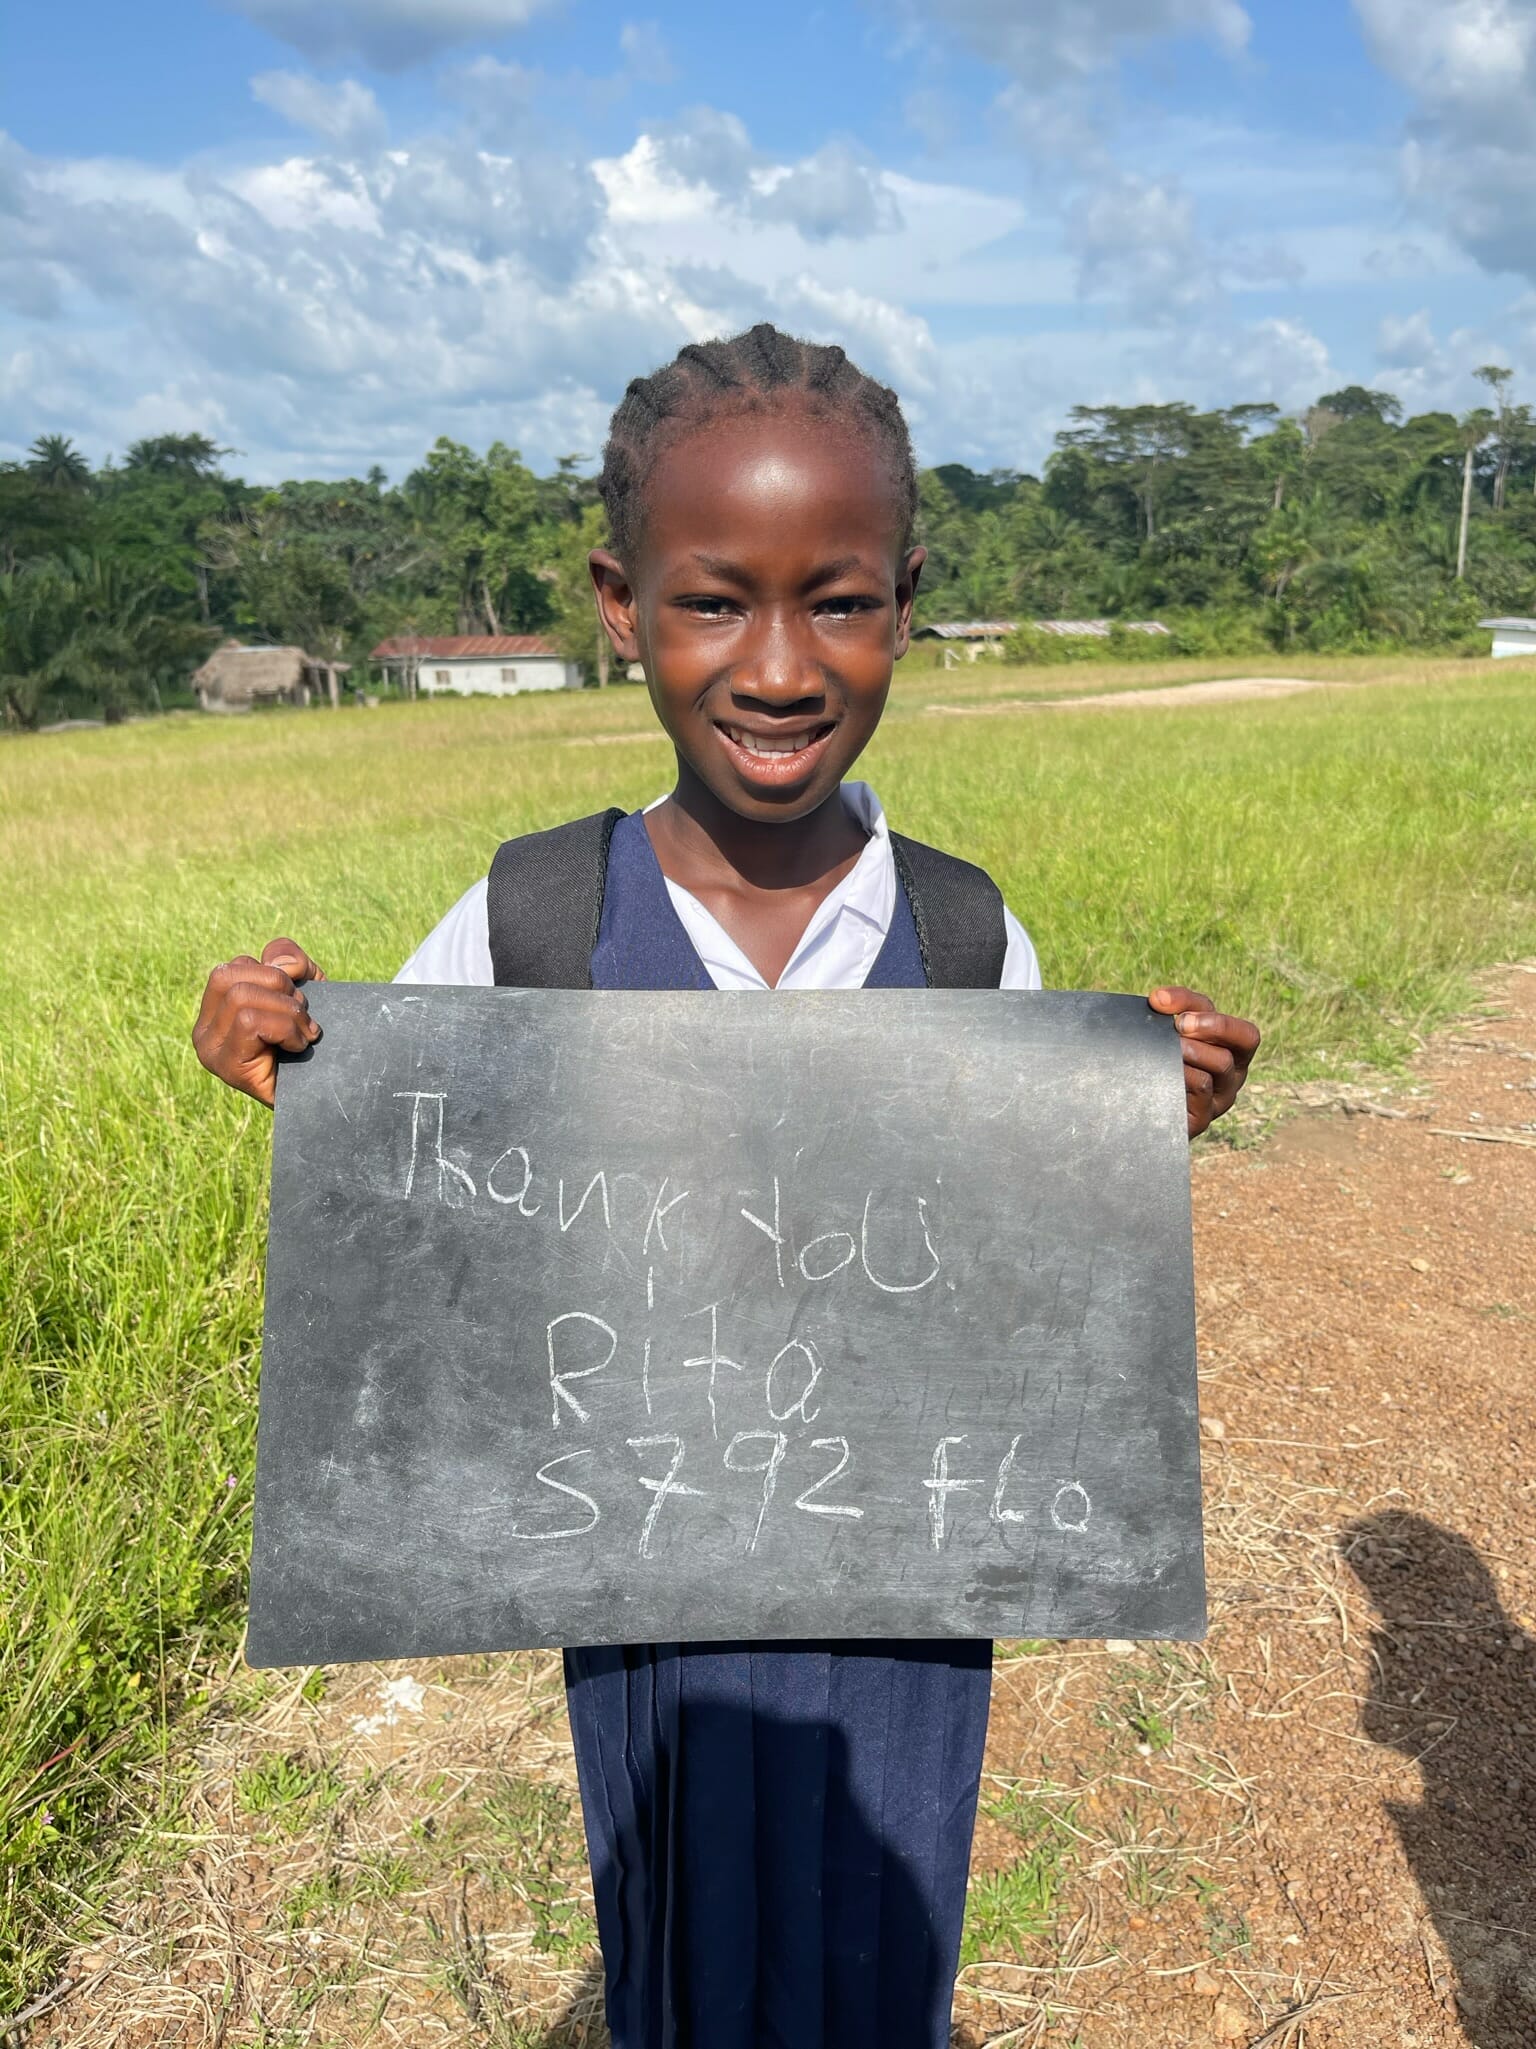 Thank YoU
Rita
S792 fLo